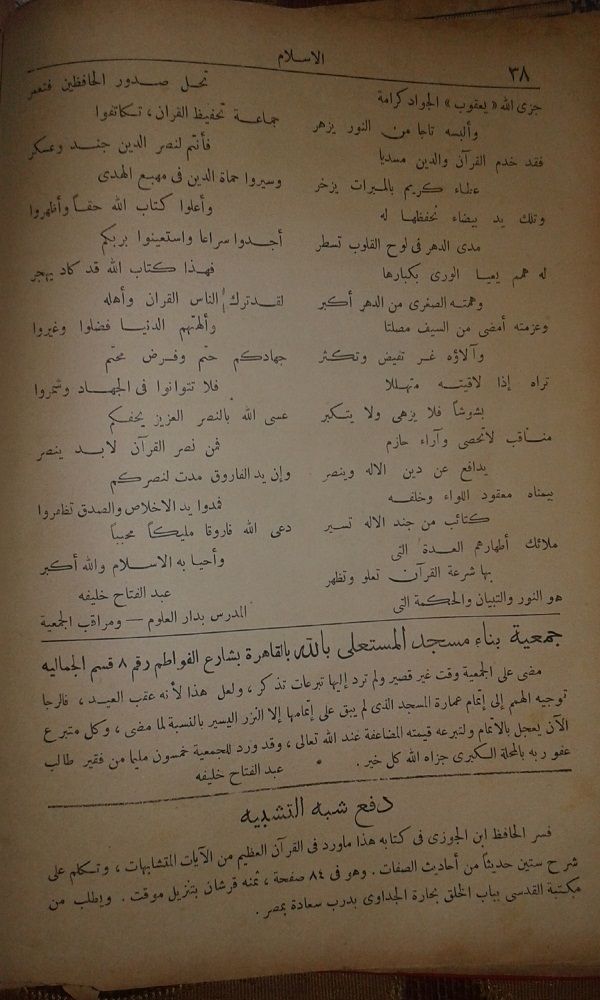 ٣٨
الاسلام
جزى الله «يعقوب» الجواد كرامة
وألبسه تاجا من النور يزهر
فقد خدم القرآن والدين مسديا
عطاء كريم بالمبرات يزخر
وتلك يد بيضاء نحفظها له
مدى الدهر فى لوح القلوب تسطر
له همم يعيا الورى بكبارها
وهمته الصغرى من الدهر أكبر
وعزمته أمضى من السيف مصلتا
وآلاؤه غر تفيض وتكثر
تراه إذا لاقيته متهللا
بشوشاً فلا يزهى ولا يتكبر
مناقب لاتحصى وآراء حازم
يدافع عن دين الاله وينصر
بيمناه معقود اللواء وخلفه
كتائب من جند الاله تسير
ملائك أطهارهم العدة التى
بها شرعة القرآن تعلو وتظهر
هو النور والتبيان والحكمة التى
تحل صدور الحافظين فتعمر
جماعة تحفيظ القران، تكاتفوا
فأنتم لنصر الدين جند وعسكر
وسيروا حماة الدين فى مهيع الهدى
وأعلوا كتاب الله حقاً وأظهروا
أجدوا سراعا واستعينوا بربكم
فهذا كتاب الله قد كاد يهجر
لقد ترك الناس القران وأهله
وألهتهم الدنيا فضلوا وغيروا
جهادكم حتم وفرض محتم
فلا تتوانوا فى الجهاد وشمروا
عسى الله بالنصر العزيز يحفكم
فمن نصر القرآن لابد ينصر
وإن يد الفاروق مدت لنصركم
فمدوا يد الاخلاص والصدق تظفروا
دعى الله فاروقا مليكاً محبباً
وأحيا به الاسلام والله أكبر
عبد الفتاح خليفه
المدرس بدار العلوم — ومراقب الجمعية
جمعية بناء مسجد المستعلى بالله بالقاهرة بشارع الفواطم رقم ٨ قسم الجماليه
مضى على الجمعية وقت غير قصير ولم ترد إليها تبرعات تذكر، ولعل هذا لأنه عقب العيد، فالرجا
توجيه الهمم إلى إتمام عمارة المسجد الذى لم يبق على إتمامها إلا النزر اليسير بالنسبة لما مضى، وكل متبرع
الآن يعجل بالاتمام ولتبرعه قيمته المضاعفة عند الله تعالى، وقد ورد للجمعية خمسون مليما من فقير طالب
عفو ربه بالمحلة الكبرى جزاه الله كل خير. عبد الفتاح خليفه
دفع شبه التشبيه
فسر الحافظ ابن الجوزى فى كتابه هذا ماورد فى القرآن العظيم من الآيات المتشابهات، وتكلم على
شرح ستين حديثاً من أحاديث الصفات. وهو فى ٨٤ صفحة، ثمنه قرشان بتنزيل موقت. ويطلب من
مكتبة القدسى بباب الخلق بحارة الجداوى بدرب سعادة بمصر.